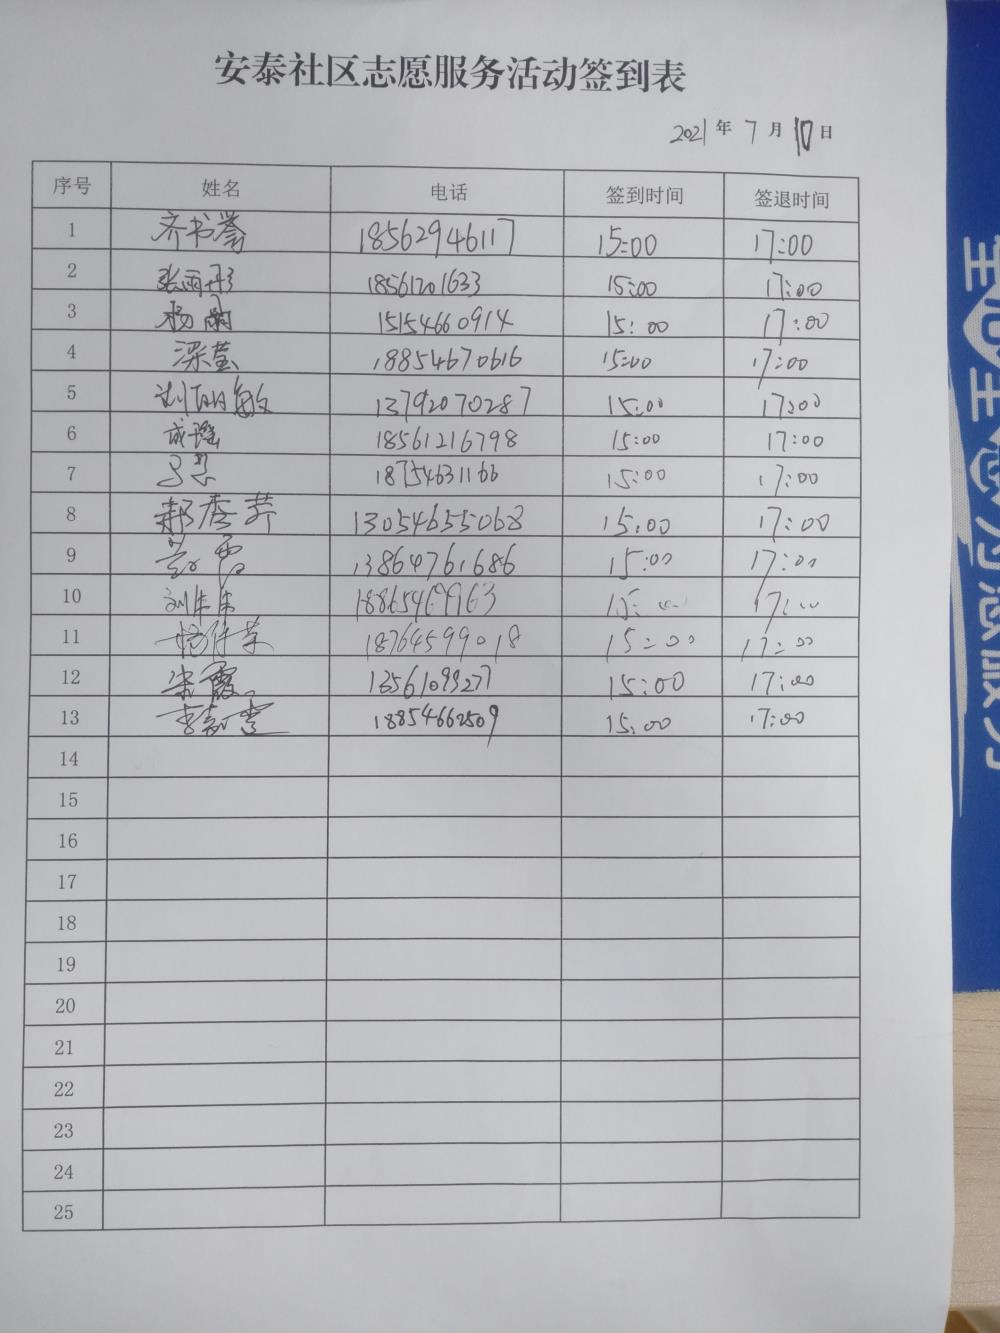 安泰社区志愿服务活动签到表
2021年7月10日
序号 姓名 电话 签到时间 签退时间
1 齐书誉 18562946117 15:00 17:00
2 张雨彤 18561201633 15:00 17:00
3 杨雨 15154660914 15:00 17:00
4 梁莹 18854670616 15:00 17:00
5 刘明敏 13792070287 15:00 17:00
6 成瑶 18561216798 15:00 17:00
7 18754631166 15:00 17:00
8 郝秀芹 13054655068 15:00 17:00
9 兰雪 13864761686 15:00 17:00
10 15:00 17:00
11 18764599018 15:00 17:00
12 宋霞 13561093277 15:00 17:00
13 18854662509 15:00 17:00
14
15
16
17
18
19
20
21
22
23
24
25